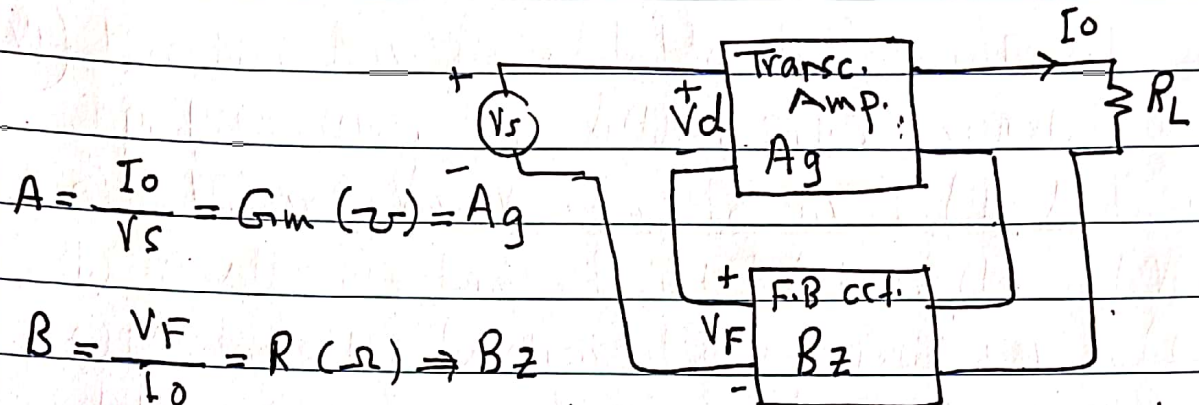 Io
Transc.
Amp.
Ag
+
Vs
-
+
Vd
-
RL
A = Io/Vs = Gm (℧) = Ag
+
VF
-
F.B cct.
Bz
B = VF/Io = R (Ω) ⇒ Bz